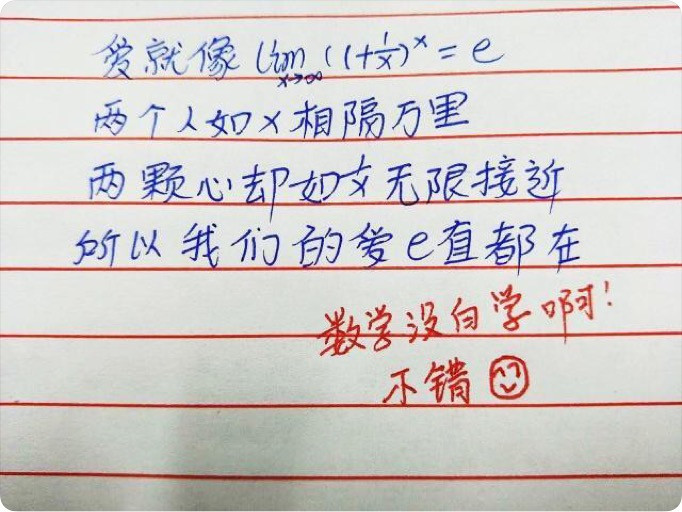 爱就像 lim x→∞ (1+1/x)^x = e
两个人如x相隔万里
两颗心却如1/x无限接近
所以我们的爱e直都在
数学没白学啊!
不错